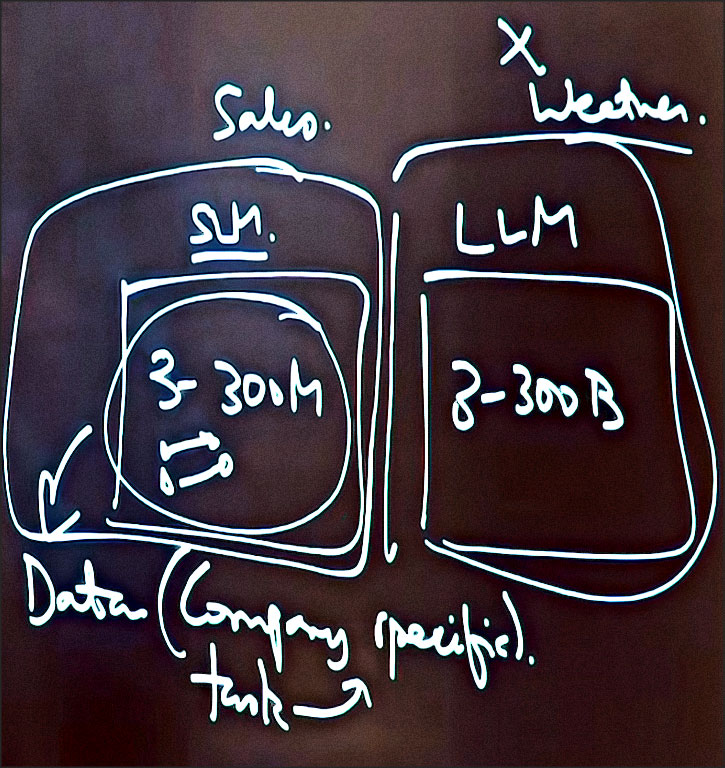 X
Sales.
Weather.
SLM.
LLM
3-300M
3-300B
Data (Company specific).
task